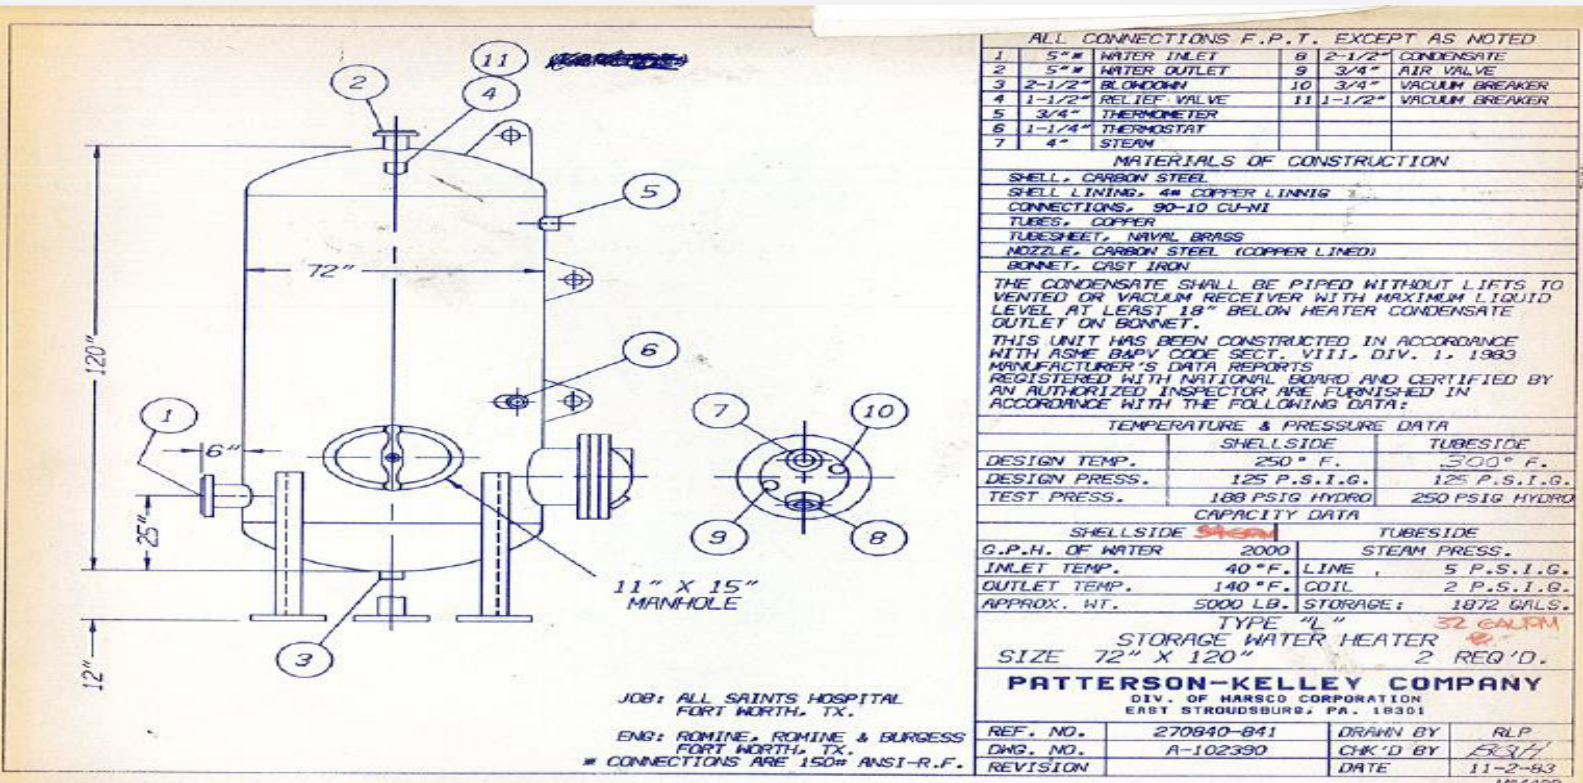 11
2
4
5
72"
120"
6
1
6"
7
10
25"
9
8
11" X 15"
MANHOLE
3
12"
JOB: ALL SAINTS HOSPITAL
FORT WORTH, TX.
ENG: ROMINE, ROMINE & BURGESS
FORT WORTH, TX.
* CONNECTIONS ARE 150# ANSI-R.F.
ALL CONNECTIONS F.P.T. EXCEPT AS NOTED
1 5"* WATER INLET 8 2-1/2" CONDENSATE
2 5"* WATER OUTLET 9 3/4" AIR VALVE
3 2-1/2" BLOWDOWN 10 3/4" VACUUM BREAKER
4 1-1/2" RELIEF VALVE 11 1-1/2" VACUUM BREAKER
5 3/4" THERMOMETER
6 1-1/4" THERMOSTAT
7 4" STEAM
MATERIALS OF CONSTRUCTION
SHELL, CARBON STEEL
SHELL LINING, 4# COPPER LINNIG
CONNECTIONS, 90-10 CU-NI
TUBES, COPPER
TUBESHEET, NAVAL BRASS
NOZZLE, CARBON STEEL (COPPER LINED)
BONNET, CAST IRON
THE CONDENSATE SHALL BE PIPED WITHOUT LIFTS TO
VENTED OR VACUUM RECEIVER WITH MAXIMUM LIQUID
LEVEL AT LEAST 18" BELOW HEATER CONDENSATE
OUTLET ON BONNET.
THIS UNIT HAS BEEN CONSTRUCTED IN ACCORDANCE
WITH ASME B&PV CODE SECT. VIII, DIV. 1, 1983
MANUFACTURER'S DATA REPORTS
REGISTERED WITH NATIONAL BOARD AND CERTIFIED BY
AN AUTHORIZED INSPECTOR ARE FURNISHED IN
ACCORDANCE WITH THE FOLLOWING DATA:
TEMPERATURE & PRESSURE DATA
SHELLSIDE TUBESIDE
DESIGN TEMP. 250° F. 300° F.
DESIGN PRESS. 125 P.S.I.G. 125 P.S.I.G.
TEST PRESS. 188 PSIG HYDRO 250 PSIG HYDRO
CAPACITY DATA
SHELLSIDE TUBESIDE
G.P.H. OF WATER 2000 STEAM PRESS.
INLET TEMP. 40°F. LINE , 5 P.S.I.G.
OUTLET TEMP. 140°F. COIL 2 P.S.I.G.
APPROX. WT. 5000 LB. STORAGE: 1872 GALS.
TYPE "L"
STORAGE WATER HEATER
SIZE 72" X 120" 2 REQ'D.
PATTERSON-KELLEY COMPANY
DIV. OF HARSCO CORPORATION
EAST STROUDSBURG, PA. 18301
REF. NO. 270840-841 DRAWN BY RLP
DWG. NO. A-102390 CHK'D BY
REVISION DATE 11-2-83